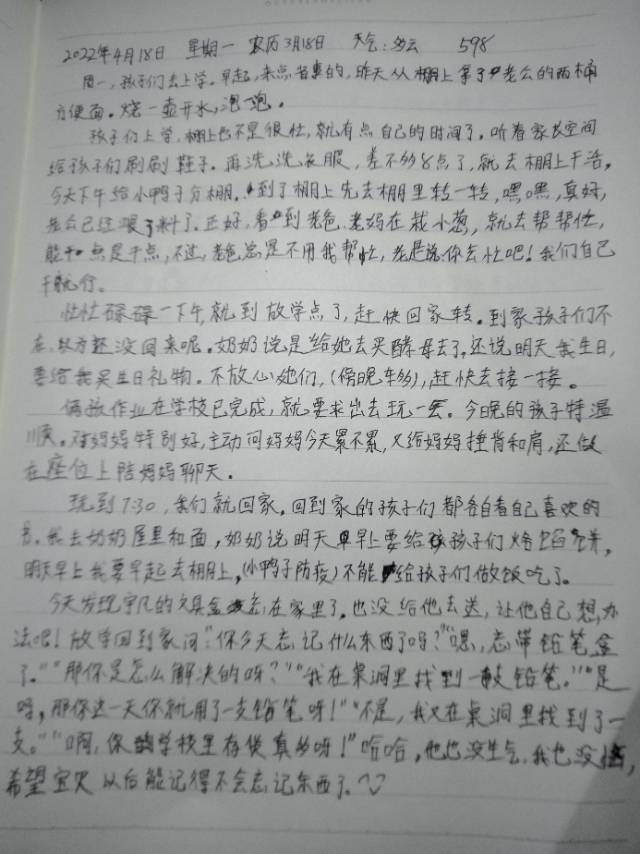 2022年4月18日 星期一 农历3月18日 天气:多云 598
周一,孩子们去上学。早起,来点省事的,昨天从棚上拿了老公的两桶
方便面。烧一壶开水,泡泡。
孩子们上学,棚上也不是很忙,就有点自己的时间了。听着家长空间
给孩子们刷刷鞋子。再洗洗衣服,差不多8点了,就去棚上干活,
今天下午给小鸭子分棚。到了棚上先去棚里转一转,嘿嘿,真好,
老公已经喂了料了。正好,看到老爸、老妈在栽小葱,就去帮帮忙,
能干点是干点,不过,老爸总是不用我帮忙,老是说你去忙吧!我们自己
干就行。
忙忙碌碌一下午,就到放学点了,赶快回家转。到家孩子们不
在,对方还没回来呢。奶奶说是给她去买酵母去了。还说明天我生日,
要给我买生日礼物。不放心她们,(傍晚车多),赶快去接一接。
俩孩作业在学校已完成,就要求出去玩一会。今晚的孩子特温
顺。对妈妈特别好,主动问妈妈今天累不累,又给妈妈捶背和肩,还做
在座位上陪妈妈聊天。
玩到7:30,我们就回家。回到家的孩子们都各自看自己喜欢的
书。我去奶奶屋里和面,奶奶说明天早上要给孩子们烙馅饼,
明天早上我要早起去棚上,(小鸭子防疫)不能给孩子们做饭吃了。
今天发现宇凡的文具盒忘在家里了。也没给他去送,让他自己想办
法吧!放学回到家问:“你今天忘记什么东西了吗?”“嗯,忘带铅笔盒
了。”“那你是怎么解决的呀?”“我在桌洞里找到一支铅笔。”“是
吗,那你这一天你就用了一支铅笔呀!”“不是,我又在桌洞里找到了一
支。”“啊,你学校里存货真多呀!”哈哈,他也没生气,我也没
希望宝贝从后能记得不会忘记东西了。